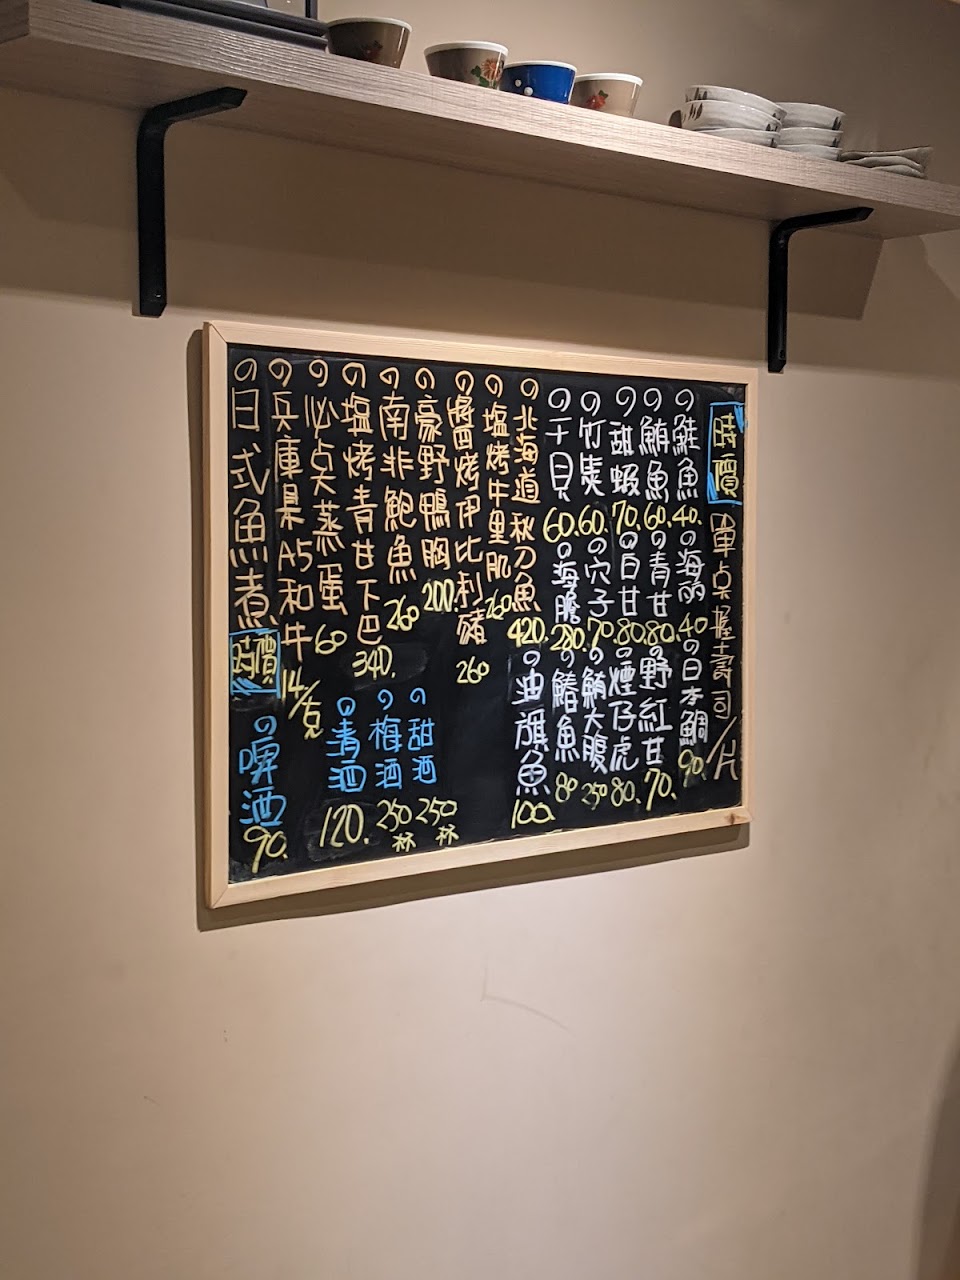 時價
單点握壽司/片
の鮭魚 40.
の海鱺 40
の日本鯛 90.
の鮪魚 60.
の青甘 80.
の野紅甘 70.
の甜蝦 70.
の白甘 80.
の煙仔虎 80.
の竹筴 60.
の穴子 70
の鮪大腹 250
の干貝 60.
の海膽 280.
の鰆魚 80
の北海道秋刀魚 420.
の油旗魚 100.
の塩烤牛里肌 260.
の醬烤伊比利豬 260
の豪野鴨胸 200.
の南非鮑魚 260
の塩烤青甘下巴 340.
の必点蒸蛋 60
の兵庫県A5和牛 14/克
の日式魚煮 時價
の甜酒 250杯
の梅酒 250杯
の青酒 120.
の啤酒 90.